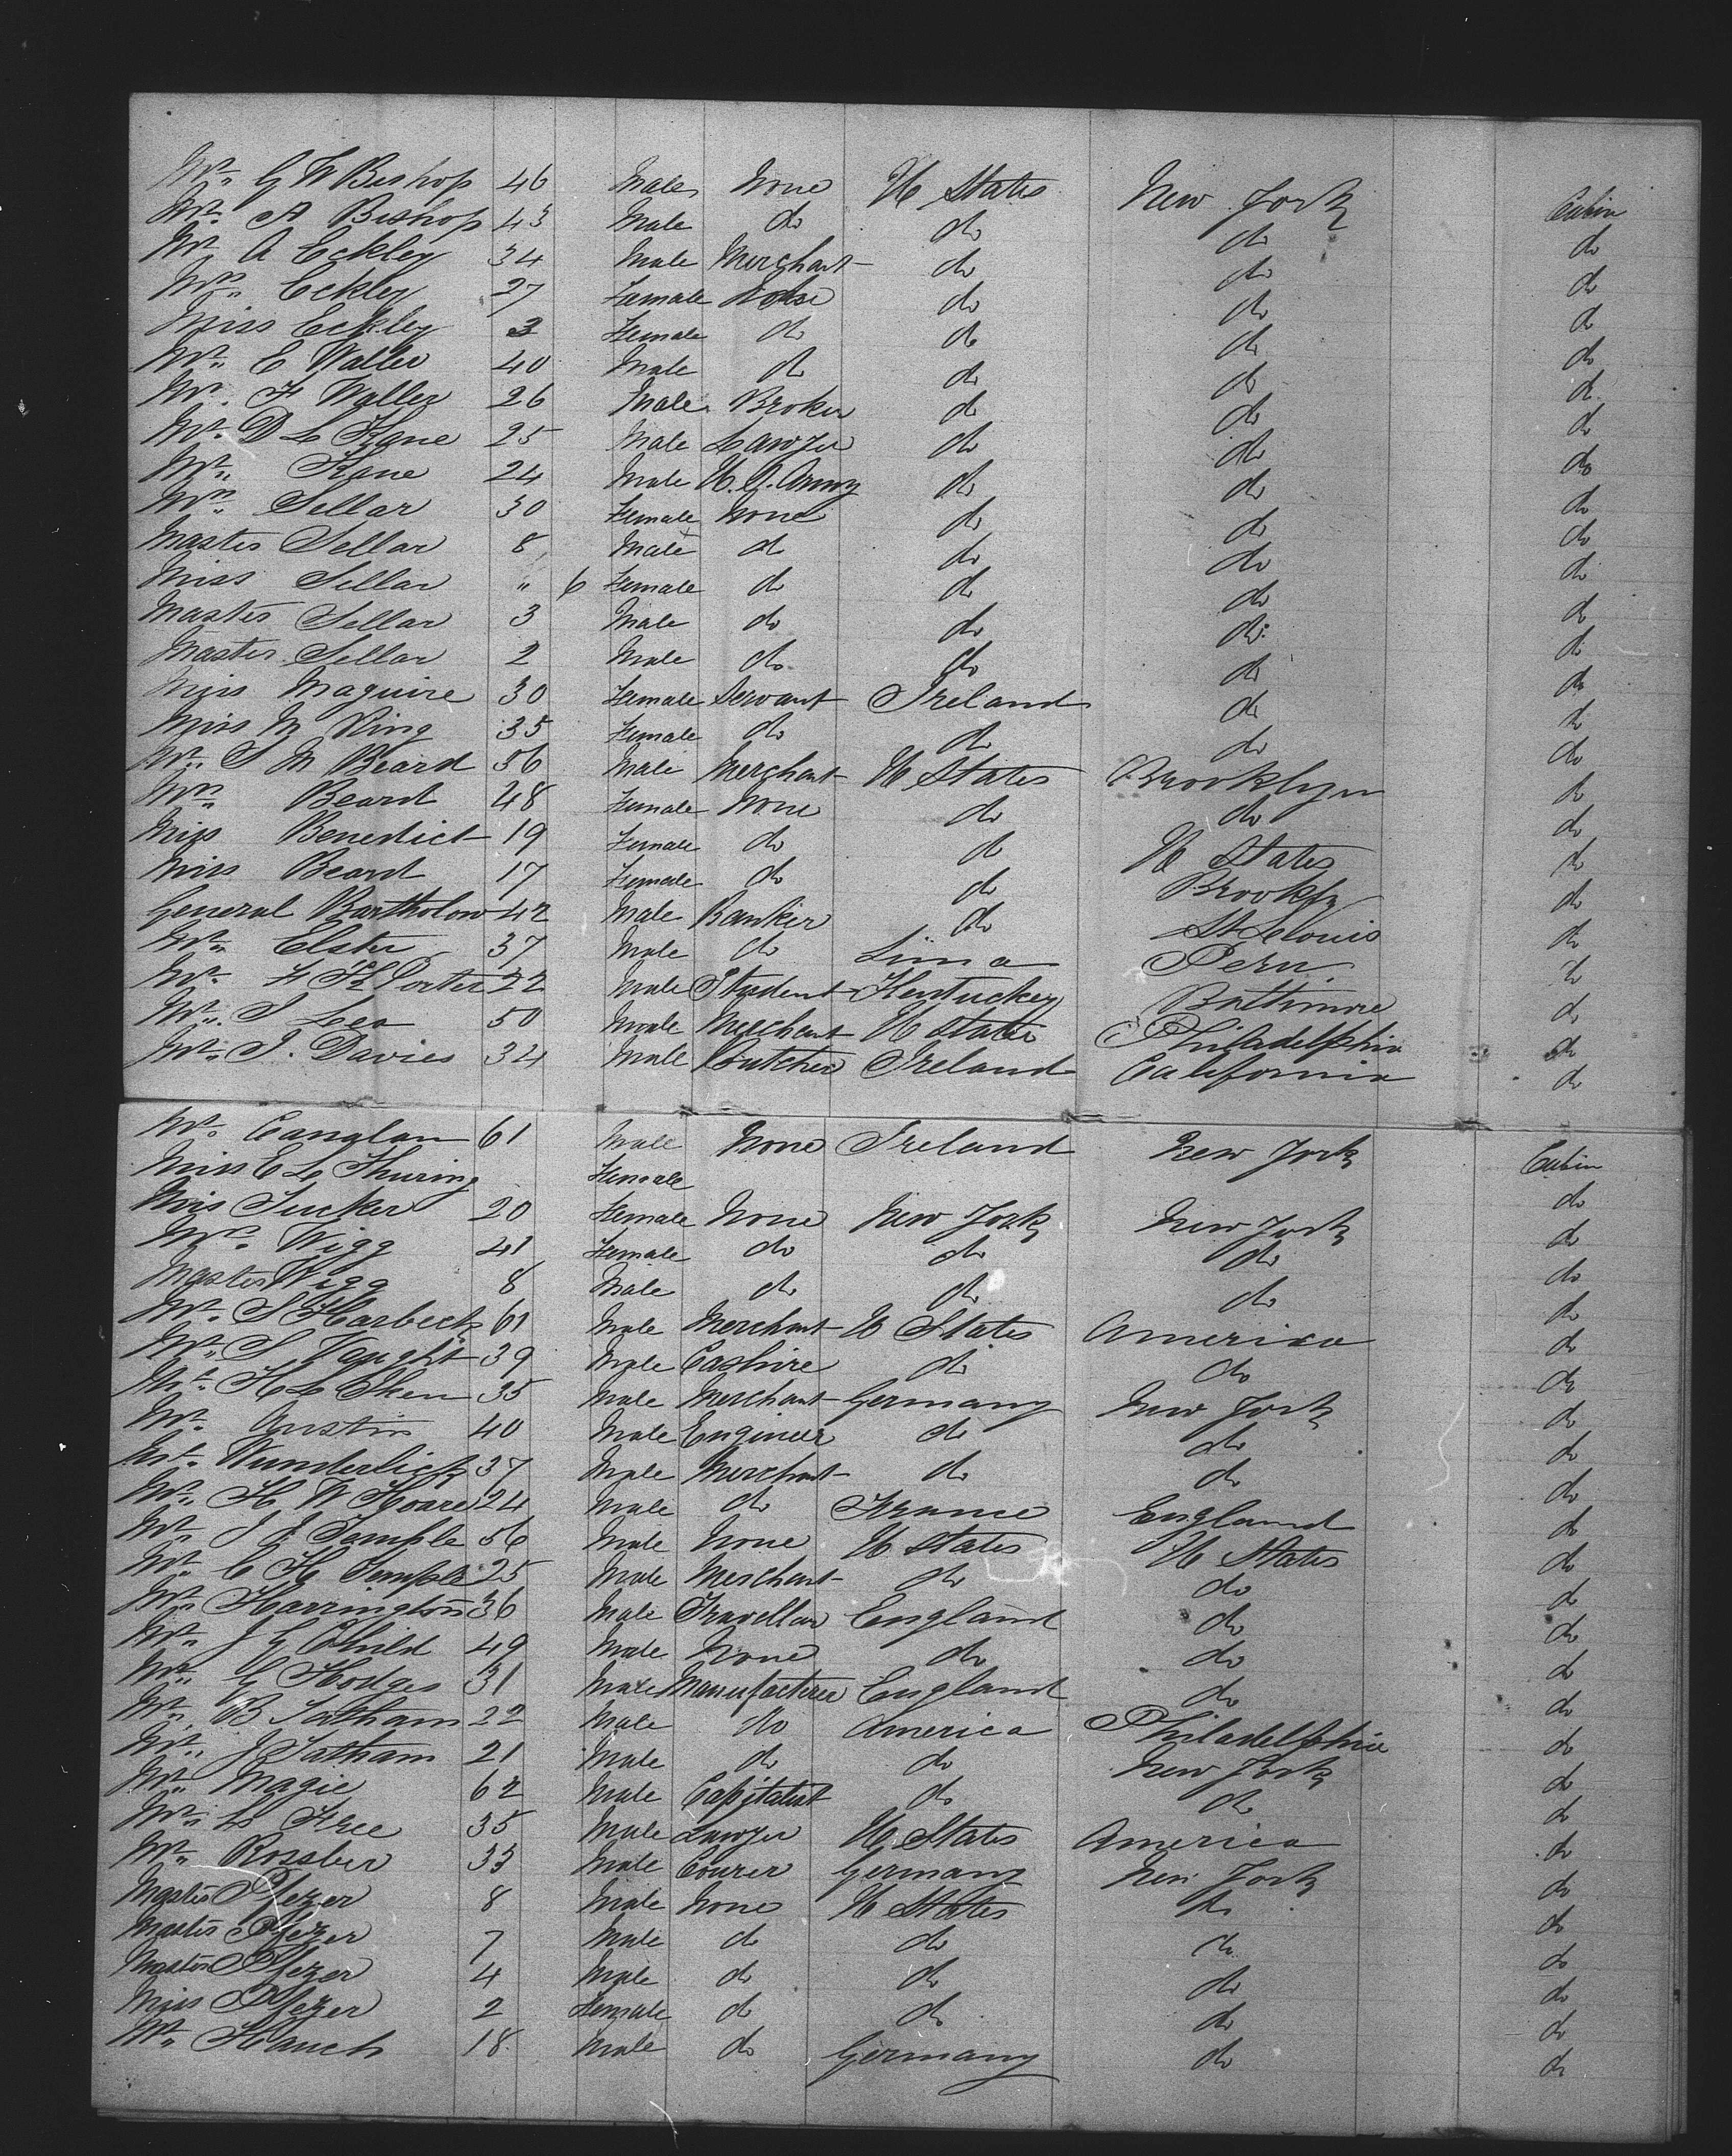 Mr. G W Bishop 46 Male None U States New York Cabin
Mr. A Bishop 43 Male do do do do
Mr A Eckley 34 Male Merchant do do do
Mrs. Eckley 27 Female None do do do
Miss Eckley 3 Female do do do do
Mr. E Waller 40 Male do do do do
Mr. F Waller 26 Male Broker do do do
Mr. D L Kane 25 Male Lawyer do do do
Mr. Kane 24 Male U.S. Army do do do
Mrs. Sellar 30 Female None do do do
Master Sellar 8 Male do do do do
Miss Sellar " 6 Female do do do do
Master Sellar 3 Male do do do do
Master Sellar 2 Male do do do do
Miss Maguire 30 Female Servant Ireland do do
Miss M King 35 Female do do do do
Mr. S M Beard 56 Male Merchant U States Brooklyn do
Mrs. Beard 48 Female None do do do
Miss Benedict 19 Female do do U States do
Miss Beard 17 Female do do Brookly do
General Bartholow 42 Male Banker do St Louis do
Mr. Elster 37 Male do Lima Peru do
Mr. F K Porter 22 Male Student Kentucky Baltimore do
Mr. S Lea 50 Male Merchant U States Philadelphia do
Mr. J. Davies 34 Male Butcher Ireland California do
Mr. Canglan 61 Male None Ireland New York Cabin
Miss E L Thuring Female do
Miss Tucker 20 Female None New York New York do
Mrs. Wigg 41 Female do do do do
Master Wigg 8 Male do do do do
Mr. S Harbeck 61 Male Merchant U States America do
Mr. S Vaught 39 Male Cashire do do do
Mr. H L 35 Male Merchant Germany New York do
Mr. Austin 40 Male Engineer do do do
Mr. Wunderlich 37 Male Merchant do do do
Mr. H W Hoare 24 Male do France England do
Mr. J J Temple 56 Male None U States U States do
Mr. C H Temple 25 Male Merchant do do do
Mr. Harrington 36 Male Traveller England do do
Mr. J G Child 49 Male None do do do
Mr. G Hodges 31 Male Manufacturer England do do
Mr. B Tatham 22 Male do America Philadelphia do
Mr. J Tatham 21 Male do do New York do
Mr. Magie 62 Male Capitalist do do do
Mr. L Free 35 Male Lawyer U. States America do
Mr. Rossler 33 Male Courer Germany New York do
Master Pfezer 8 Male None U States do do
Master Pfezer 7 Male do do do do
Master Pfezer 4 Male do do do do
Miss Pfezer 2 Female do do do do
Mr. Hauch 18 Male do Germany do do